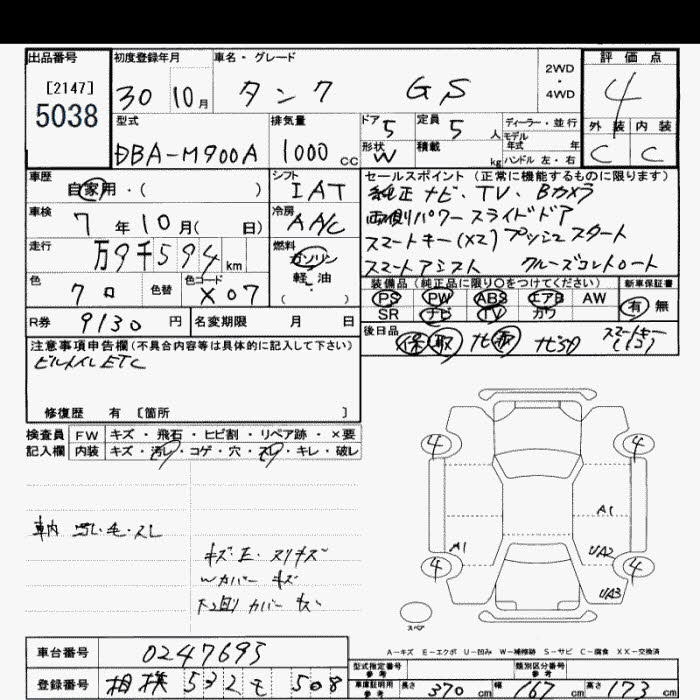 出品番号 初度登録年月 車名・グレード 2WD・4WD 評価点
[2147]
5038 30 10月 タンク GS 4
型式 排気量 ドア 5 定員 5人 ディーラー・並行 外装 内装
DBA-M900A 1000cc 形状 W 積載 kg モデル年式 年 ハンドル 左・右 C C
車歴 自家用・( ) シフト IAT セールスポイント (正常に機能するものに限ります)
車検 7年10月( 日) 冷房 AA/C 純正ナビ、TV、Bカメラ
両側パワースライドドア
走行 万9千594km 燃料 ガソリン 軽油 ( ) スマートキー(X2) プッシュスタート
スマートアシスト クルーズコントロート
色 7ロ 色替 色コード X07 装備品(純正品に限り○をつけてください) 新車保証書
PS PW ABS エアB AW 有 無
R券 9130円 名変期限 月 日 SR ナビ TV カワ
後日品 保 取 ナビ取 スマートキー
注意事項申告欄(不具合内容等は具体的に記入して下さい)
ビルトイレETC
修復歴 有 [箇所 ]
検査員 FW キズ・飛石・ヒビ割・リペア跡・×要
記入欄 内装 キズ・汚レ・コゲ・穴・スレ・キレ・破レ
4 4
A1
車内 汚レ・毛・スレ
A1 UA2
キズE・スリキズ
4 4
Wカバー キズ
UA3
下回りカバー キズ
スペア
A-キズ E-エクボ U-凹み W-補修跡 S-サビ C-腐食 XX-交換済
車台番号 0247693
型式指定番号 参考 類別区分番号 参考
登録番号 相模 532 モ 508
車庫証明用 参考 長さ 370cm 幅 167cm 高さ 173cm